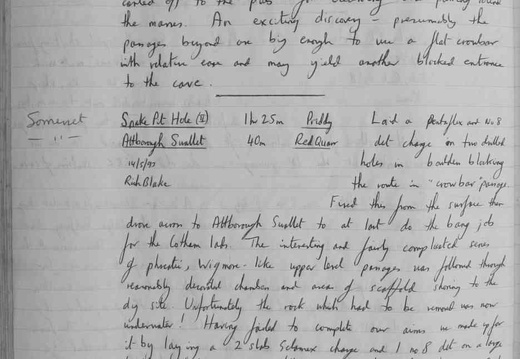 carted off to the pub for
the manes. An exciting discovery – presumably the
passages beyond are big enough to use a flat crowbar
with relative ease and may yield another blocked entrance
to the cave.
Somerset Snake Pit Hole 1hr 25m Priddy Laid a pentaflex and No 8
– " – Attborough Swallet 40m Red Quar det charge in two drilled
14/5/97 holes in boulder blocking
Rich Blake the route in "crowbar" passage.
Fired this from the surface then
drove across to Attborough Swallet to at last do the bang job
for the Cotham lads. The interesting and fairly complicated series
of phreatic, Wigmore-like upper level passages was followed through
reasonably decorated chambers and area of scaffold shoring to the
dig site. Unfortunately the rock which had to be removed was now
underwater! Having failed to complete our aims we made up for
it by laying a 2 slab Selamex charge and 1 no 8 det on a large